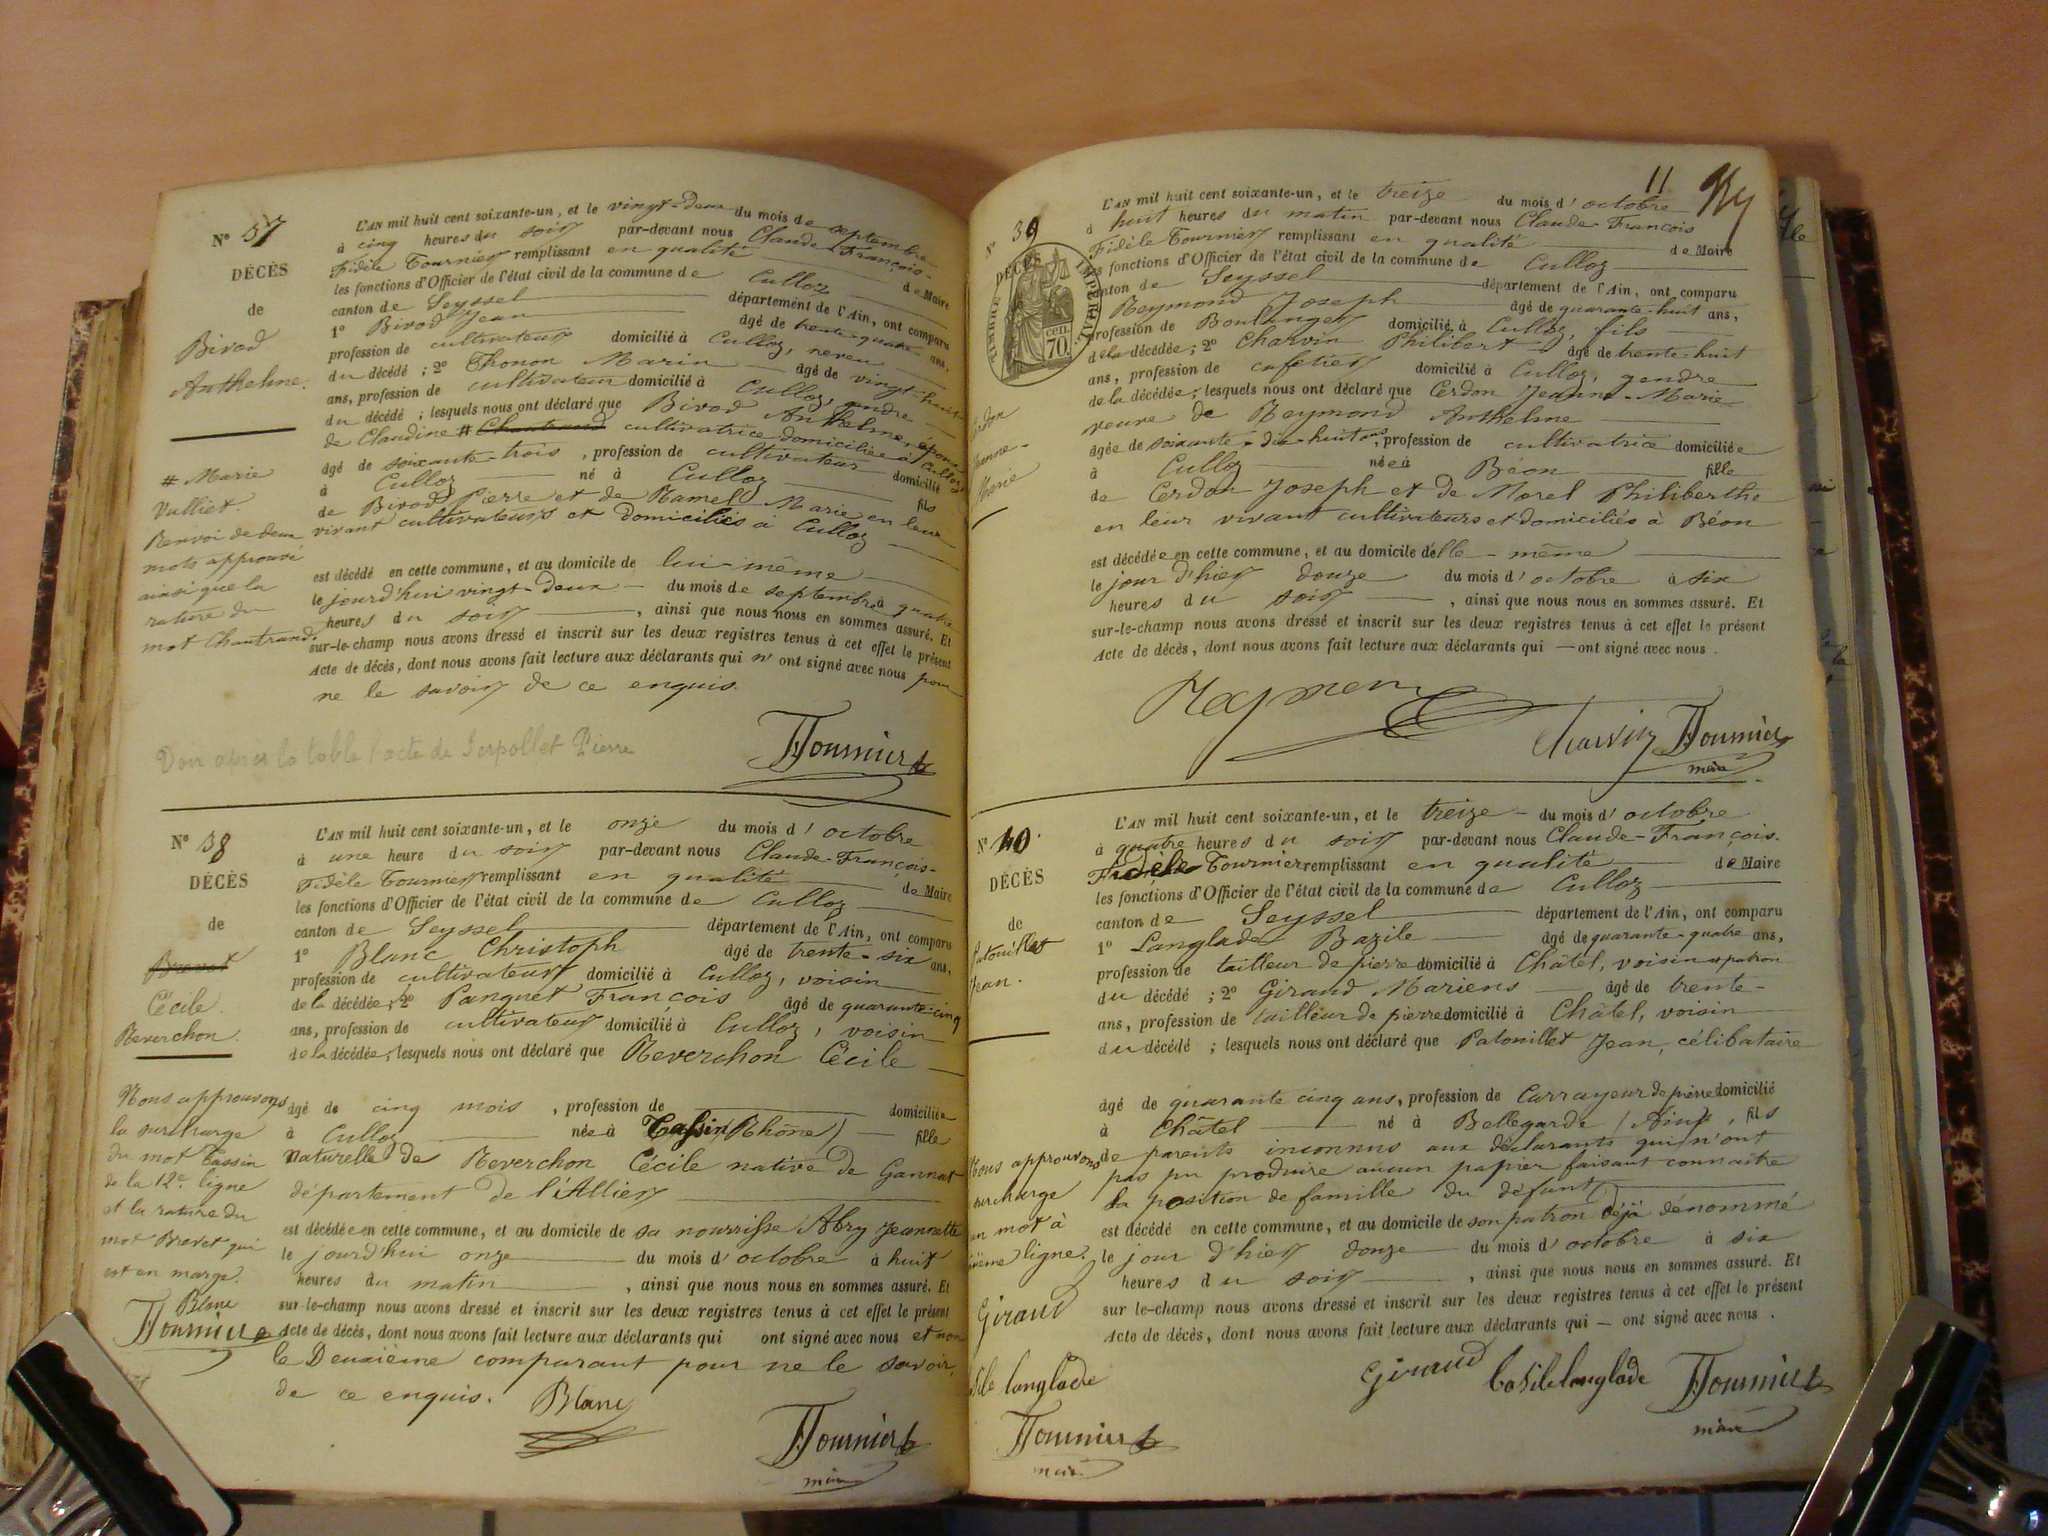 N° 37
DÉCÈS
de
Bivod
Anthelme.
# Marie
Vulliet.
Renvoi de deux
mots approuvé
ainsi que la
rature du
mot Chantrand.
L'AN mil huit cent soixante-un, et le vingt-deux du mois de septembre
à cinq heures du soir par-devant nous Claude-François-
Fidèle Tournier remplissant en qualité de Maire
les fonctions d'Officier de l'état civil de la commune de Culloz
canton de Seyssel département de l'Ain, ont comparu
1° Bivod Jean âgé de trente-quatre ans,
profession de cultivateur domicilié à Culloz, neveu
du décédé ; 2° Thonon Marin âgé de vingt-huit
ans, profession de cultivateur domicilié à Culloz, gendre
du décédé ; lesquels nous ont déclaré que Bivod Anthelme, époux
de Claudine # Chantrand cultivatrice domiciliée à Culloz
âgé de soixante-trois, profession de cultivateur domicilié
à Culloz né à Culloz fils
de Bivod Pierre et de Ramel Marie en leur
vivant cultivateurs et domiciliés à Culloz
est décédé en cette commune, et au domicile de lui-même
le jourd'hui vingt-deux du mois de septembre à quatre
heures du soir, ainsi que nous nous en sommes assuré. Et
sur-le-champ nous avons dressé et inscrit sur les deux registres tenus à cet effet le présent
Acte de décès, dont nous avons fait lecture aux déclarants qui n'ont signé avec nous pour
ne le savoir de ce enquis.
Voir après la table l'acte de Serpollet Pierre
Tournier
N° 38
DÉCÈS
de
Brevet
Cécile.
Reverchon.
Nous approuvons
la surcharge
du mot Tassin
de la 12e ligne
et la rature du
mot Brevet qui
est en marge.
Blanc
Tournier
L'AN mil huit cent soixante-un, et le onze du mois d'octobre
à une heure du soir par-devant nous Claude-François-
Fidèle Tournier remplissant en qualité de Maire
les fonctions d'Officier de l'état civil de la commune de Culloz
canton de Seyssel département de l'Ain, ont comparu
1° Blanc Christoph âgé de trente-six ans,
profession de cultivateur domicilié à Culloz, voisin
de la décédée ; 2° Panquet François âgé de quarante-cinq
ans, profession de cultivateur domicilié à Culloz, voisin
de la décédée, lesquels nous ont déclaré que Reverchon Cécile
âgé de cinq mois, profession de domiciliée
à Culloz née à Tassin (Rhône) fille
naturelle de Reverchon Cécile native de Gannat
département de l'Allier
est décédée en cette commune, et au domicile de sa nourrisse Abry Jeannette
le jourd'hui onze du mois d'octobre à huit
heures du matin, ainsi que nous nous en sommes assuré. Et
sur-le-champ nous avons dressé et inscrit sur les deux registres tenus à cet effet le présent
Acte de décès, dont nous avons fait lecture aux déclarants qui ont signé avec nous et non
le Deuxième comparant pour ne le savoir,
de ce enquis. Blanc
Tournier
maire
11
N° 39
DÉCÈS
TIMBRE IMPÉRIAL
70. cen.
Jeanne-
Marie
L'AN mil huit cent soixante-un, et le treize du mois d'octobre
à huit heures du matin par-devant nous Claude-François
Fidèle Tournier remplissant en qualité de Maire
les fonctions d'Officier de l'état civil de la commune de Culloz
canton de Seyssel département de l'Ain, ont comparu
Reymond Joseph âgé de quarante-huit ans,
profession de Boulanger domicilié à Culloz, fils
de la décédée ; 2° Charvin Philibert âgé de trente-huit
ans, profession de cafetier domicilié à Culloz, gendre
de la décédée, lesquels nous ont déclaré que Cerdon Jeanne-Marie
veuve de Reymond Anthelme
âgée de soixante-dix-huit ans, profession de cultivatrice domiciliée
à Culloz née à Béon fille
de Cerdon Joseph et de Morel Philiberthe
en leur vivant cultivateurs et domiciliés à Béon
est décédée en cette commune, et au domicile d'elle-même
le jour d'hier douze du mois d'octobre à six
heures du soir, ainsi que nous nous en sommes assuré. Et
sur-le-champ nous avons dressé et inscrit sur les deux registres tenus à cet effet le présent
Acte de décès, dont nous avons fait lecture aux déclarants qui — ont signé avec nous.
Raymon
Charvin Tournier
maire
N° 40.
DÉCÈS
de
Patouillet
Jean.
Nous approuvons
surcharge
mot à
ième ligne.
Giraud
Basile langlade
Tournier
maire
L'AN mil huit cent soixante-un, et le treize du mois d'octobre
à quatre heures du soir par-devant nous Claude-François.
Fidèle Tournier remplissant en qualité de Maire
les fonctions d'Officier de l'état civil de la commune de Culloz
canton de Seyssel département de l'Ain, ont comparu
1° Langlade Bazile âgé de quarante-quatre ans,
profession de tailleur de pierre domicilié à Châtel, voisin et patron
du décédé ; 2° Giraud Mariens âgé de trente-
ans, profession de tailleur de pierre domicilié à Châtel, voisin
du décédé ; lesquels nous ont déclaré que Patouillet Jean, célibataire
âgé de quarante cinq ans, profession de Carrayeur de pierre domicilié
à Châtel né à Bellegarde (Ain), fils
de parents inconnus aux déclarants qui n'ont
pas pu produire aucun papier faisant connaître
la position de famille du défunt
est décédé en cette commune, et au domicile de son patron déjà dénommé
le jour d'hier douze du mois d'octobre à six
heures du soir, ainsi que nous nous en sommes assuré. Et
sur le-champ nous avons dressé et inscrit sur les deux registres tenus à cet effet le présent
Acte de décès, dont nous avons fait lecture aux déclarants qui — ont signé avec nous.
Giraud Basile langlade Tournier
maire